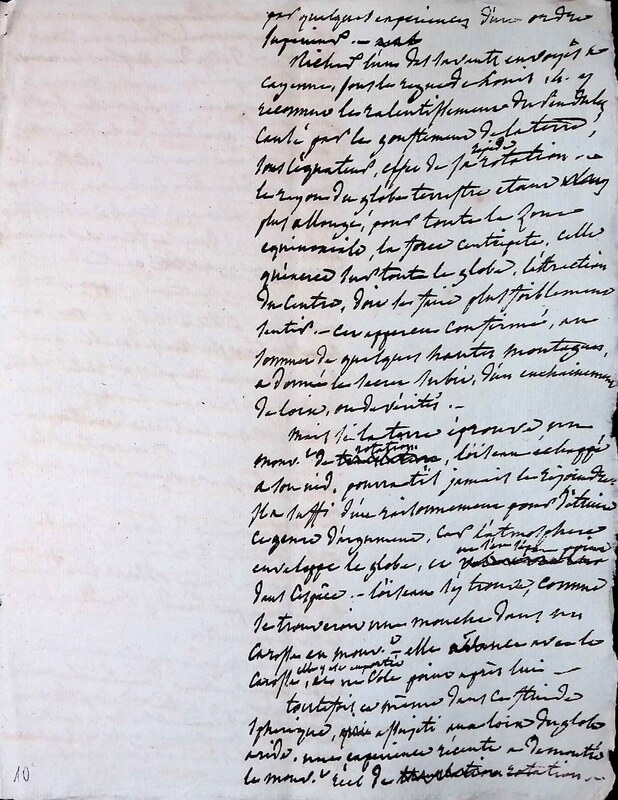 par quelques expériences d'un ordre
supérieur. —
Richer l'un des savants envoyés à
cayenne, sous le regne de Louis 14. y
reconnut le ralentissement du Pendule,
causé par le gonflement de la terre,
sous l'équateur, effet de sa rapide rotation. —
le rayon du globe terrestre étant
plus allongé, pour toute la Zone
equinoxiale, la force centripete, celle
qu'exerce sur tout le globe, l'attraction
du centre, doit se faire plus foiblement
sentir. — cet apperçu confirmé, au
sommet de quelques hautes montagnes,
a donné le secret subit, d'un enchainement
de loix, ou de vérités. —
mais si la terre éprouve un
mouv.t de rotation, l'oiseau échappé
a son nid, pourra t'il jamais le rejoindre
Il a suffi d'un raisonnement pour détruire
ce genre d'argument, car l'atmosphere
enveloppe le globe, et
dans l'espace. — l'oiseau s'y trouve, comme
se trouveroit une mouche dans un
carosse en mouv.t — elle avance avec le
carosse, elle y est emportée, et ne vole point après lui —
toutefois ce même
spherique, assujeti aux loix du globe
aride. une expérience récente a démontré
le mouv.t réel de rotation —
10